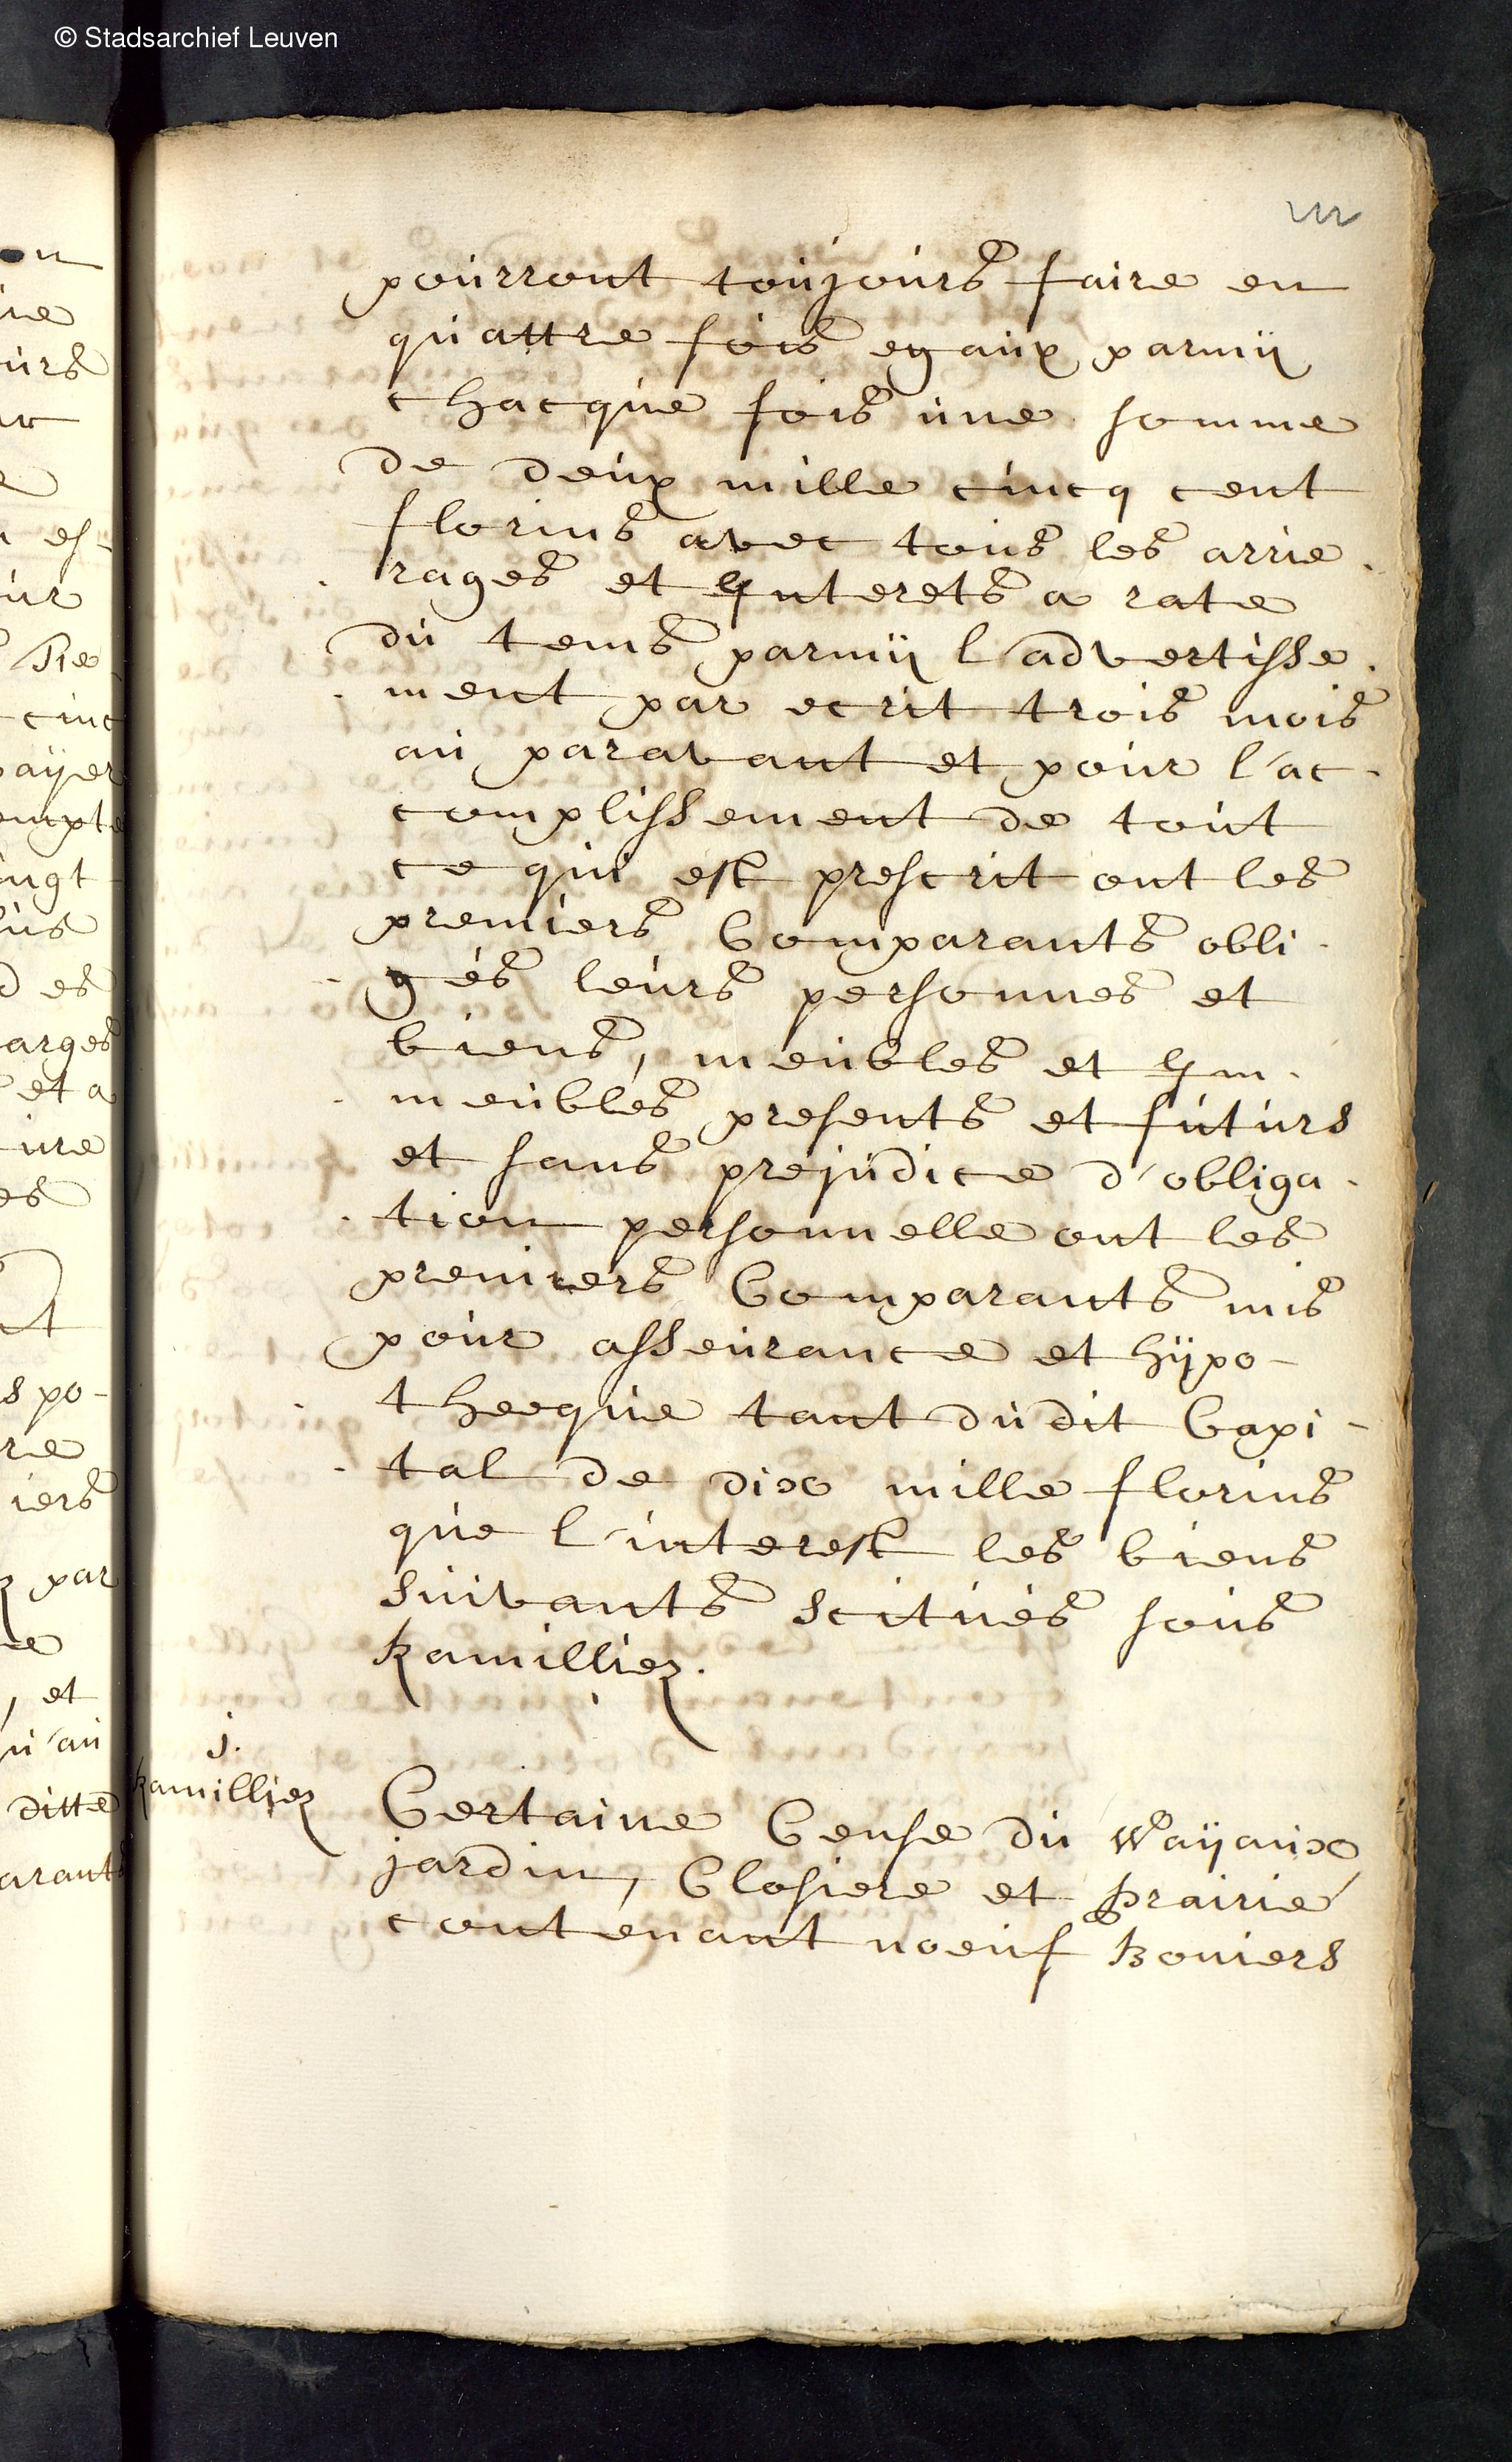 © Stadsarchief Leuven
pourront toujours faire en
quattre fois egaux parmij
chacque fois une somme
de deux mille cincq cent
florins avec tous les arrie-
-rages et Ynterets a rate
du tems parmij l'advertisse-
-ment par ecrit trois mois
au paravant et pour l'ac-
complissement de tout
ce qui est prescrit ont les
premiers Comparants obli-
-gés leurs personnes et
biens, meubles et Ym-
-meubles presents et futurs
et sans prejudice d'obliga-
-tion personnelle ont les
premiers Comparants mis
pour asseurance et hÿpo-
-thecque tant du dit Capi-
-tal de dix mille florins
que l'interest les biens
suivants scitués sous
Ramilliez.
j.
Ramilliez
Certaine Cense du Waÿaux
jardin, Closiere et prairie
contenant noeuf Boniers